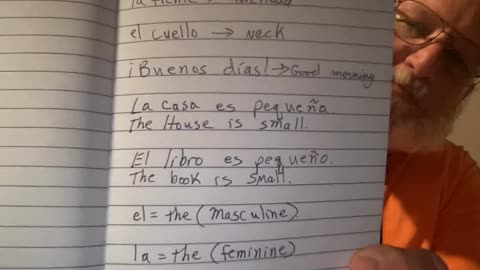 el cuello → Neck
¡Buenos días! → Good morning
La casa es pequeña
The House is small.
El libro es pequeño.
The book is small.
el = the (masculine)
la = the (feminine)